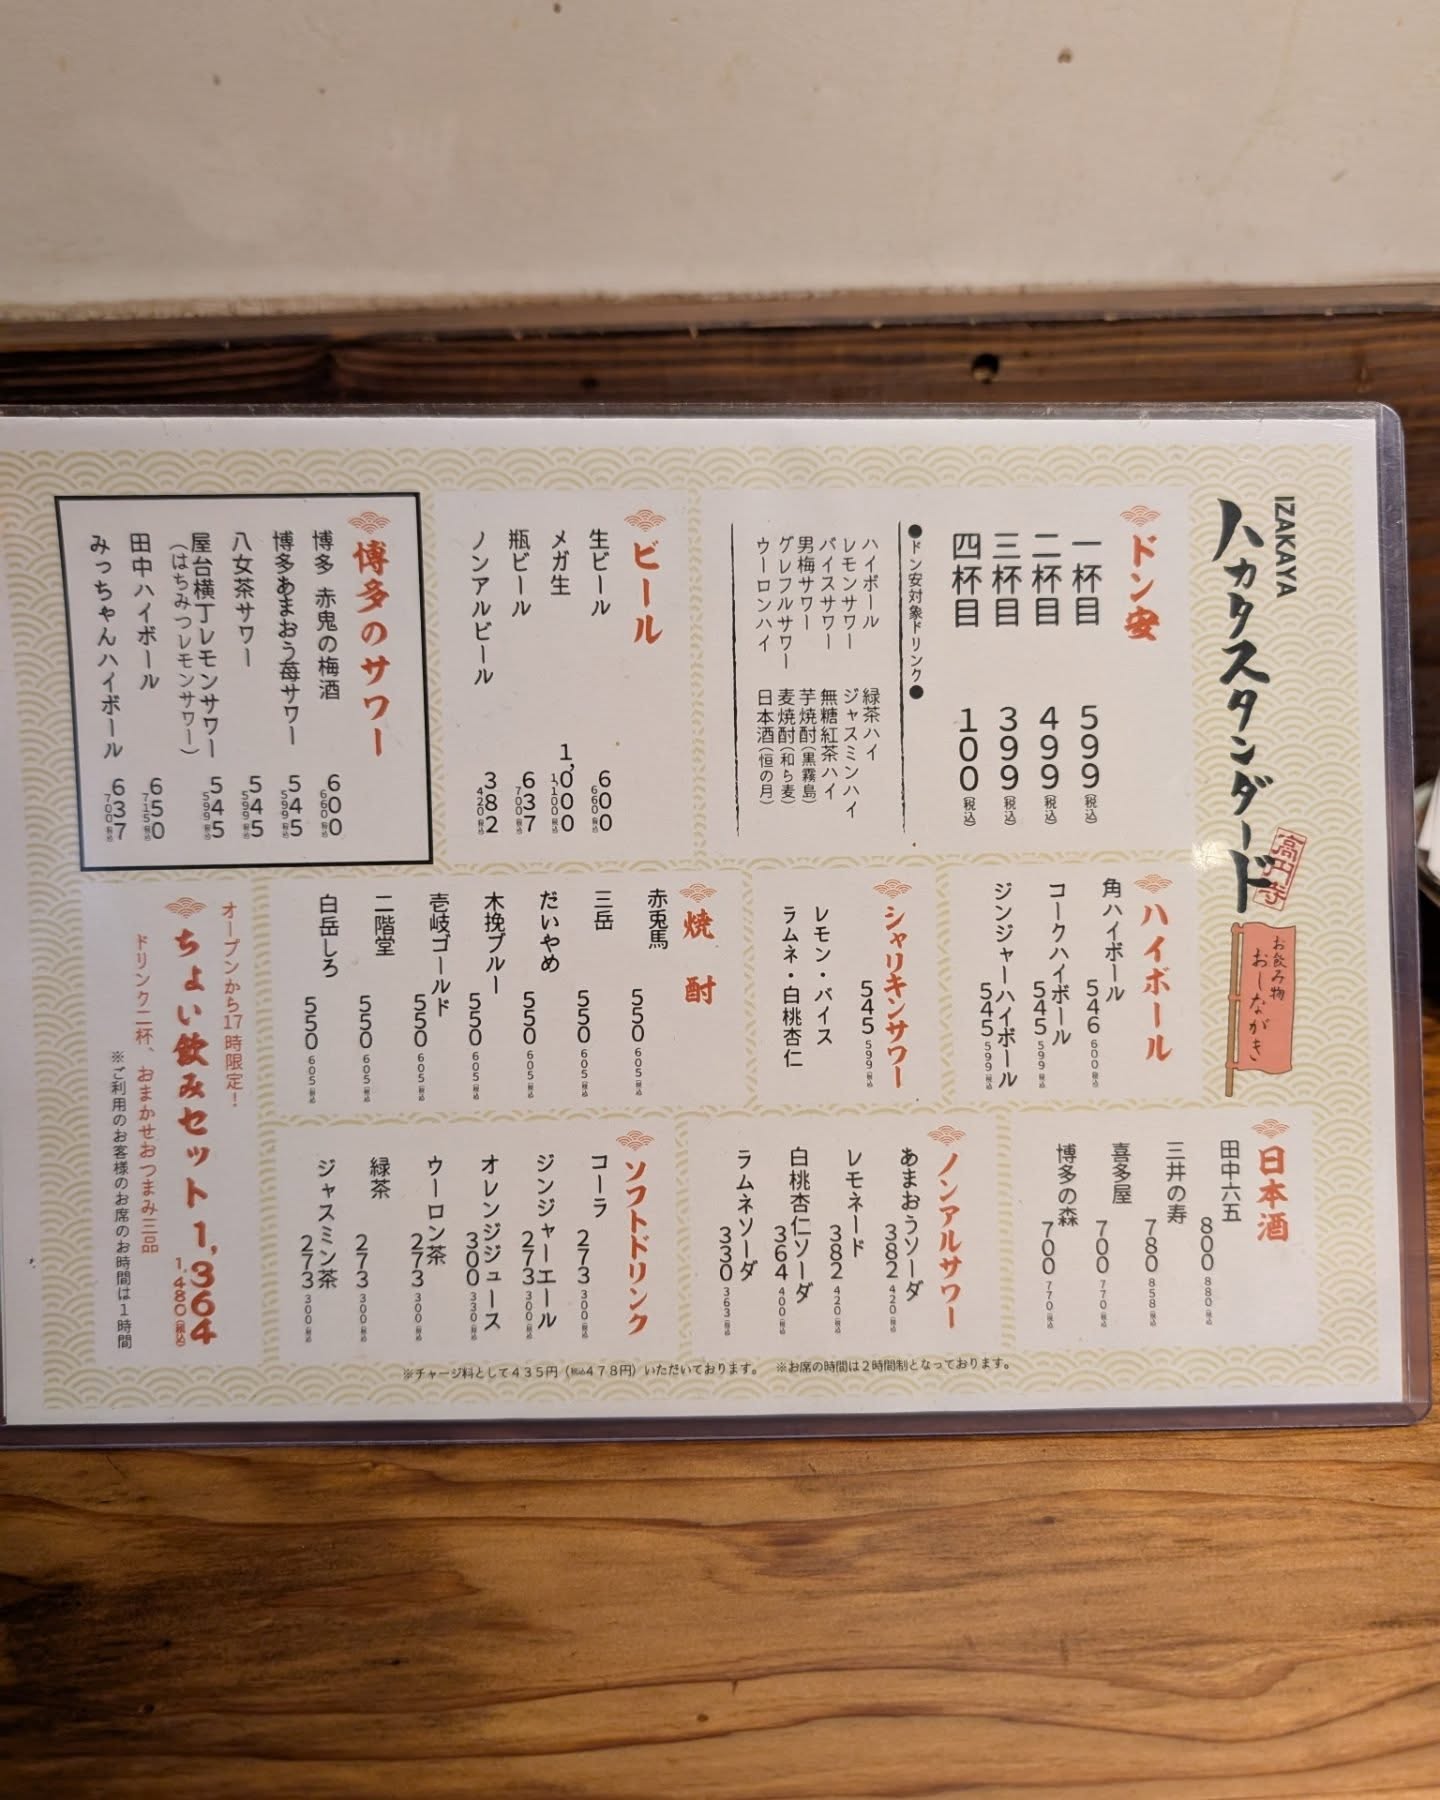 IZAKAYA
ハカタスタンダード
高円寺
お飲み物
おしながき
ドン安
一杯目 599(税込)
二杯目 499(税込)
三杯目 399(税込)
四杯目 100(税込)
●ドン安対象ドリンク●
ハイボール 緑茶ハイ
レモンサワー ジャスミンハイ
バイスサワー 無糖紅茶ハイ
男梅サワー 芋焼酎(黒霧島)
グレフルサワー 麦焼酎(和ら麦)
ウーロンハイ 日本酒(恒の月)
ビール
生ビール 600 660(税込)
メガ生 1,000 1,100(税込)
瓶ビール 637 700(税込)
ノンアルビール 382 420(税込)
博多のサワー
博多 赤鬼の梅酒 600 660(税込)
博多あまおう苺サワー 545 599(税込)
八女茶サワー 545 599(税込)
屋台横丁レモンサワー 545 599(税込)
(はちみつレモンサワー)
田中ハイボール 650 715(税込)
みっちゃんハイボール 637 700(税込)
ハイボール
角ハイボール 546 600(税込)
コークハイボール 545 599(税込)
ジンジャーハイボール 545 599(税込)
シャリキンサワー
545 599(税込)
レモン・バイス
ラムネ・白桃杏仁
焼酎
赤兎馬 550 605(税込)
三岳 550 605(税込)
だいやめ 550 605(税込)
木挽ブルー 550 605(税込)
壱岐ゴールド 550 605(税込)
二階堂 550 605(税込)
白岳しろ 550 605(税込)
日本酒
田中六五 800 880(税込)
三井の寿 780 858(税込)
喜多屋 700 770(税込)
博多の森 700 770(税込)
ノンアルサワー
あまおうソーダ 382 420(税込)
レモネード 382 420(税込)
白桃杏仁ソーダ 364 400(税込)
ラムネソーダ 330 363(税込)
ソフトドリンク
コーラ 273 300(税込)
ジンジャーエール 273 300(税込)
オレンジジュース 300 330(税込)
ウーロン茶 273 300(税込)
緑茶 273 300(税込)
ジャスミン茶 273 300(税込)
オープンから17時限定!
ちょい飲みセット 1,364
1,480(税込)
ドリンク二杯、おまかせおつまみ三品
※ご利用のお客様のお席のお時間は1時間
※チャージ料として435円(税込478円)いただいております。 ※お席の時間は2時間制となっております。